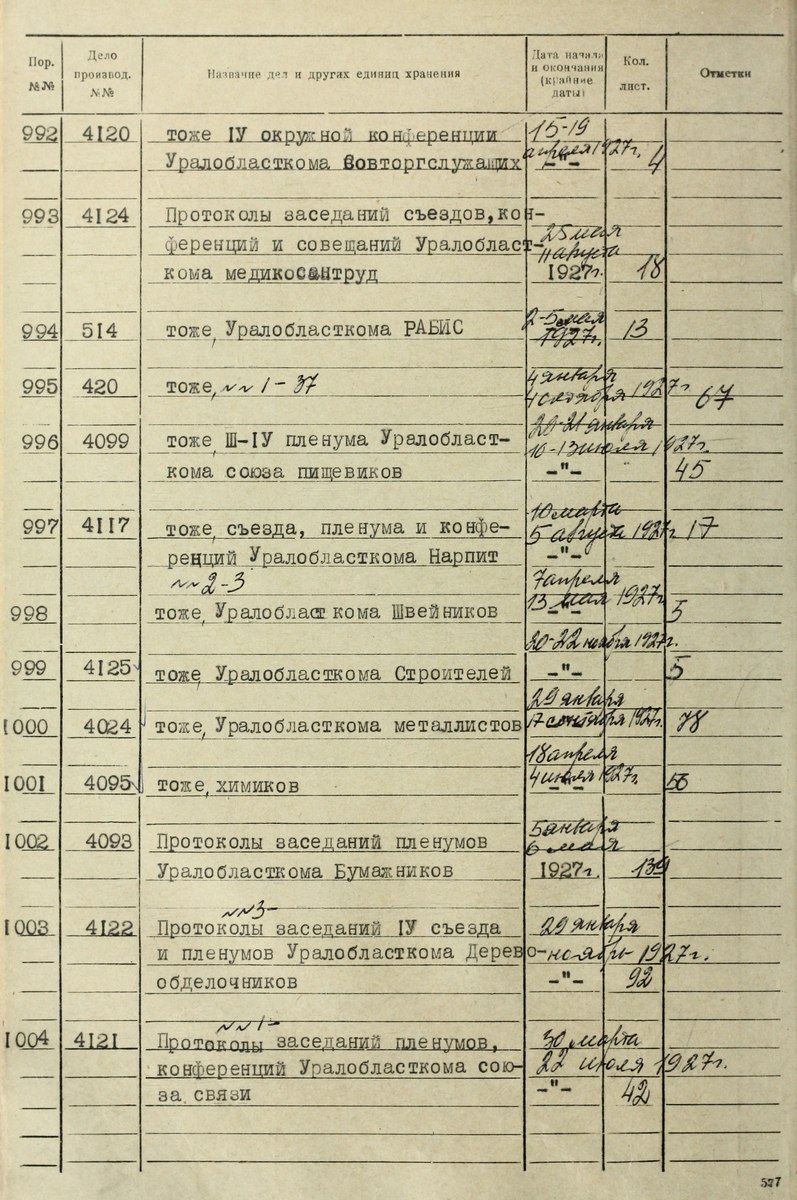 Пор. №№ Дело производ. №№ Название дел и других единиц хранения Дата начала и окончания (крайние даты) Кол. лист. Отметки
992 4120 тоже IУ окружной конференции 15-19
Уралобласткома Совторгслужащих апреля 1927г. -"- 4
993 4124 Протоколы заседаний съездов,кон-
ференций и совещаний Уралобласт- 25 мая 11 августа
кома медикосантруд 1927г. 18
994 514 тоже, Уралобласткома РАБИС 2-5 мая 1927г. 13
995 420 тоже, №№ 1-37 4 января 4 октября 1927г. 67
996 4099 тоже, Ш-IУ пленума Уралобласт- 20-21 января 10-13 июля 1927г.
кома союза пищевиков -"- 45
997 4117 тоже, съезда, пленума и конфе- 10 марта 5 августа 1927г. 17
ренций Уралобласткома Нарпит -"-
№№ 2-3 7 апреля
998 тоже, Уралобласткома Швейников 13 мая 1927г. 5
20-22 ноября 1927г.
999 4125 тоже, Уралобласткома Строителей -"- 5
29 января
1000 4024 тоже, Уралобласткома металлистов 17 сентября 1927г. 78
18 апреля
1001 4095 тоже, химиков 4 июля 1927г. 56
1002 4093 Протоколы заседаний пленумов 5 января 6 мая
Уралобласткома Бумажников 1927г. 139
№№ 3-
1003 4122 Протоколы заседаний IУ съезда 29 января
и пленумов Уралобласткома Дерево- -ноябрь 1927г.
обделочников -"- 92
№№ 1-
1004 4121 Протоколы заседаний пленумов, 30 марта
конференций Уралобласткома сою- 22 июля 1927г.
за связи -"- 42
577